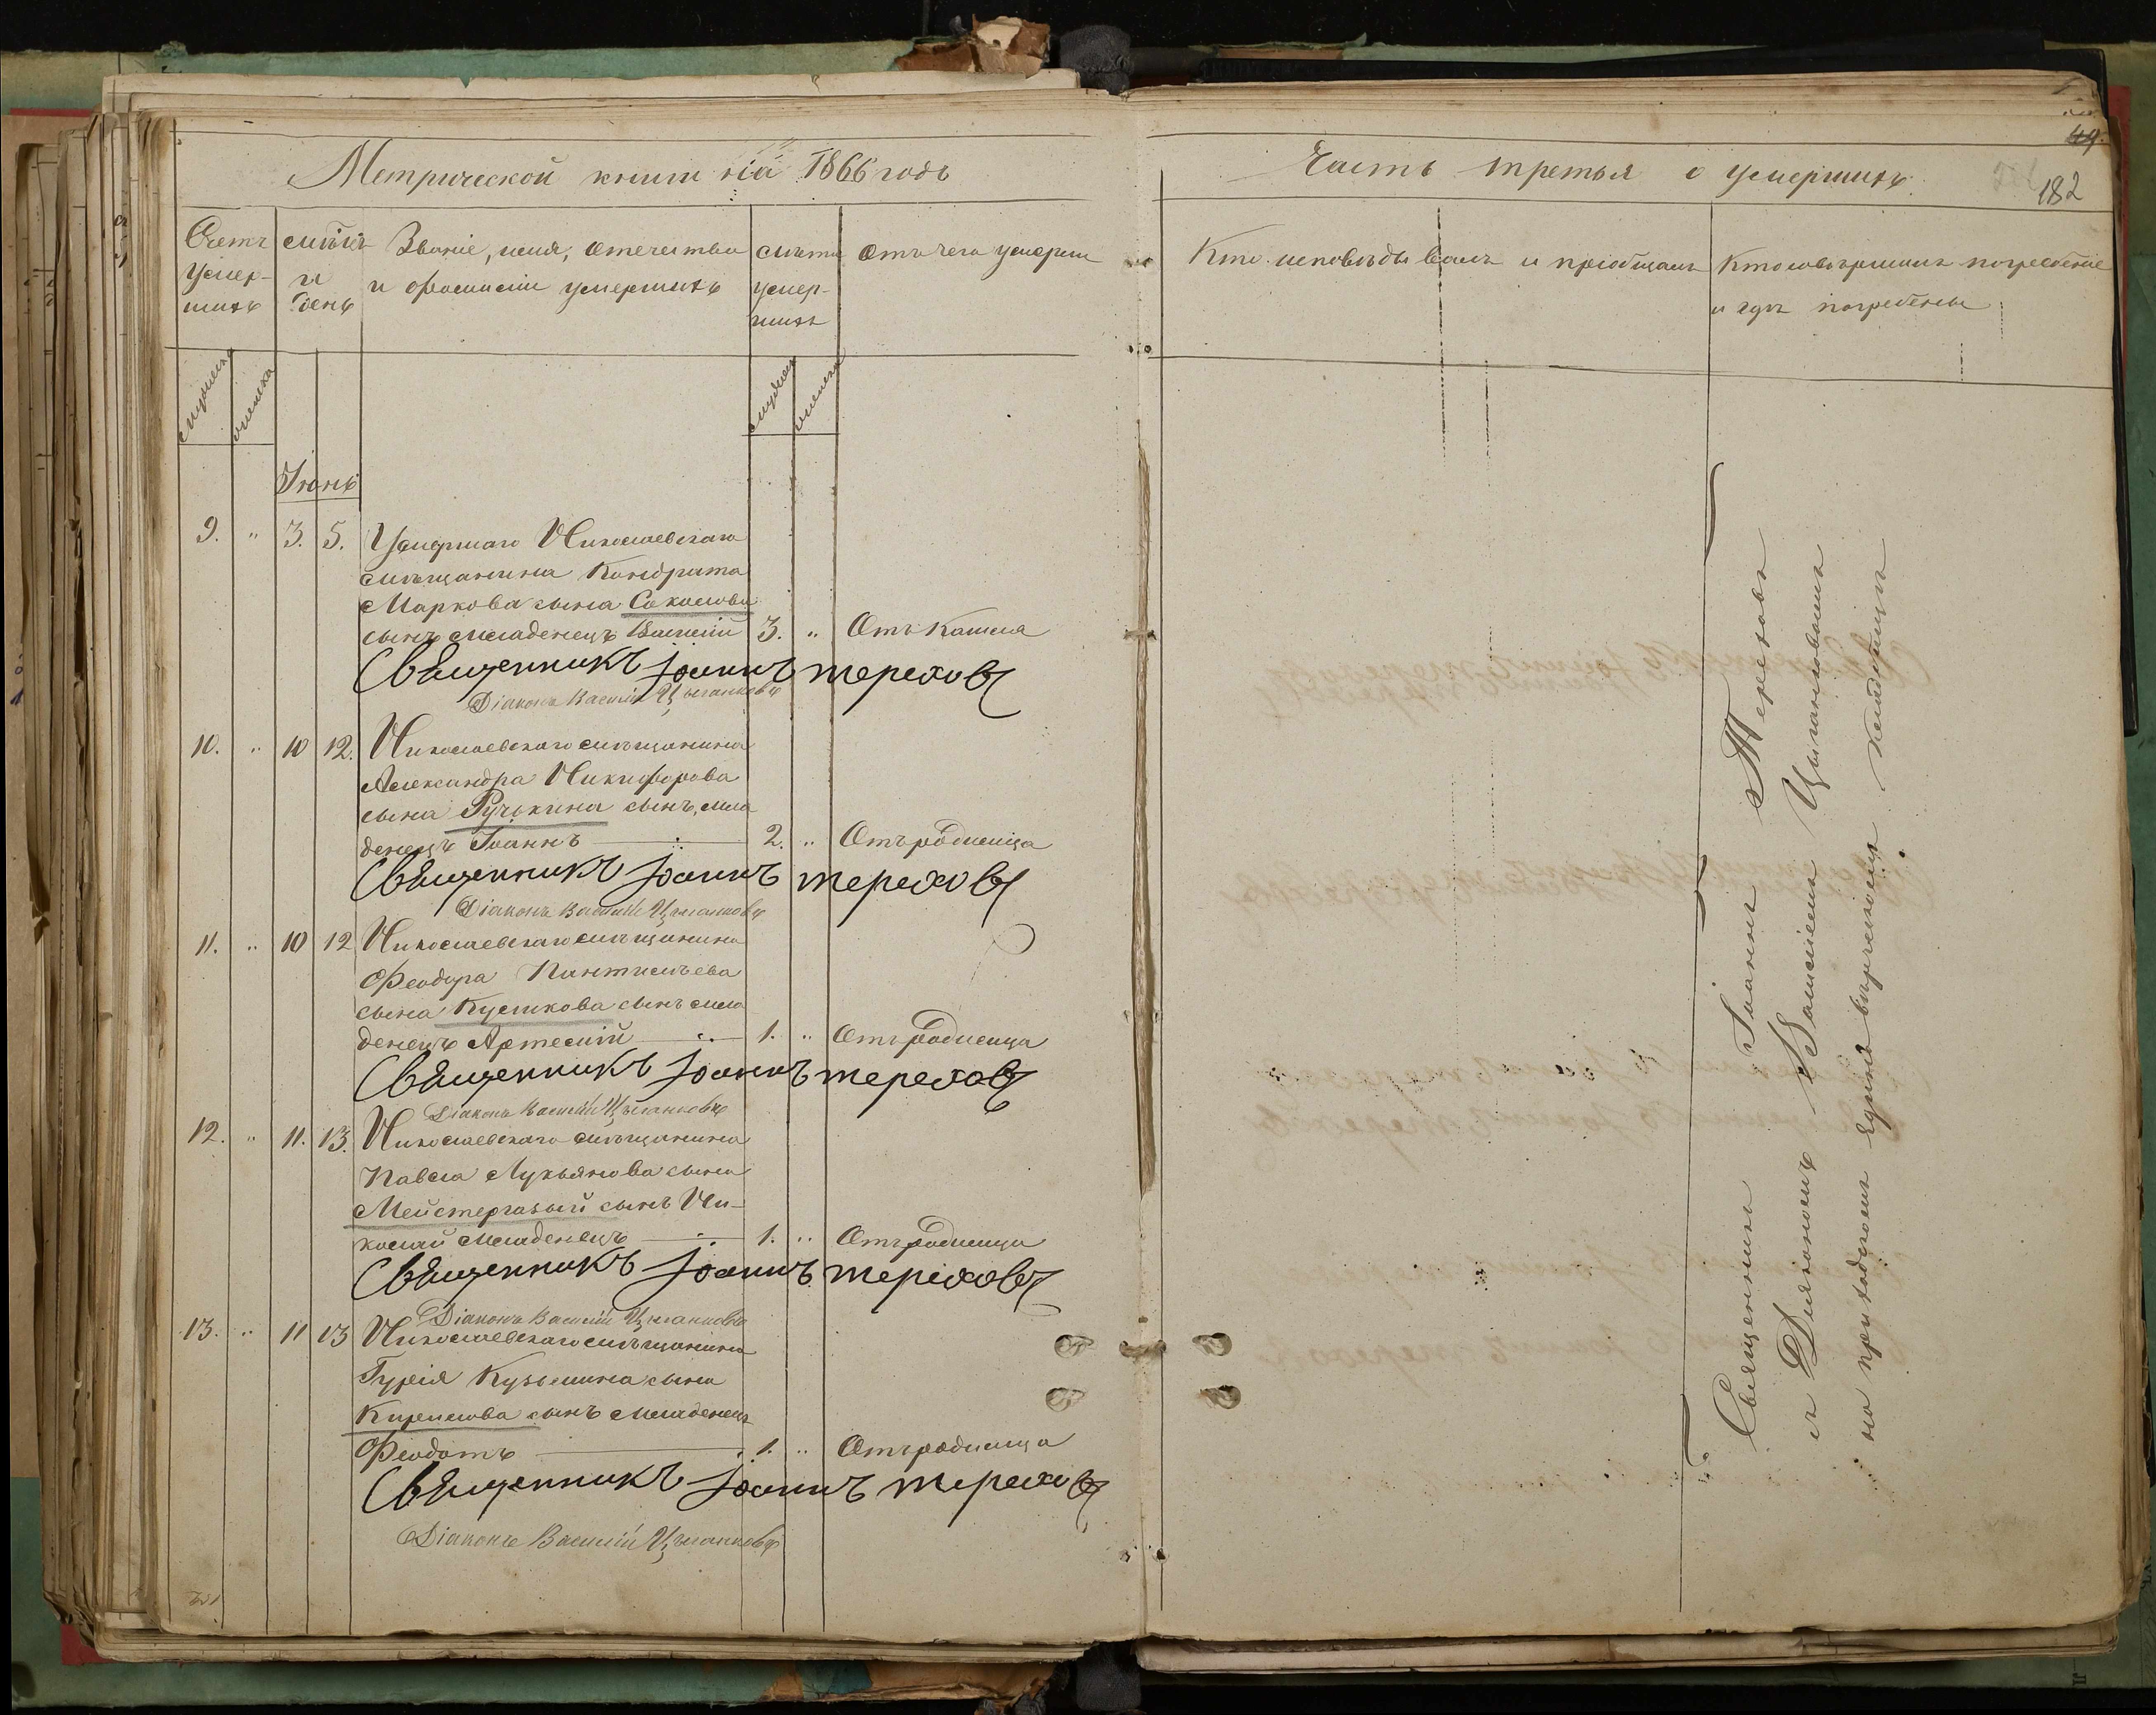 Метрической книги на 1866 годъ
Счетъ умер-шихъ
мѣсяцъ и день
Званіе, имя, отечество и фамиліи умершихъ
лѣта умер-шихъ
Отъ чего умерли
мужеска
женска
мужеска
женска
Іюнь
9. " 3. 5. Умершаго Николаевскаго
мѣщанина Кондрата
Маркова сына Соколова
сынъ младенецъ Василій 3. " Отъ кашля
Священникъ Іоаннъ Тереховъ
Діаконъ Василій Цыганковъ
10. " 10 12. Николаевскаго мѣщанина
Александра Никифорова
сына Ручькина сынъ, мла
денецъ Іоаннъ 2. " Отъ родимца
Священникъ Іоаннъ Тереховъ
Діаконъ Василій Цыганковъ
11. " 10 12 Николаевскаго мѣщанина
Феодора Пантилѣева
сына сынъ мла
денецъ Артемій 1. " Отъ родимца
Священникъ Іоаннъ Тереховъ
Діаконъ Василій Цыганковъ
12. " 11. 13. Николаевскаго мѣщанина
Павла Лукьянова сына
сынъ Ни-
колай младенецъ 1. " Отъ родимца
Священникъ Іоаннъ Тереховъ
Діаконъ Василій Цыганковъ
13. " 11 13 Николаевскаго мѣщанина
Гурія Кузьмина сына
Кирилова сынъ младенецъ
Феодотъ 1. " Отъ родимца
Священникъ Іоаннъ Тереховъ
Діаконъ Василій Цыганковъ
Часть третья о умершихъ
182
Кто исповѣдывалъ и пріобщалъ
Кто совершилъ погребеніе
и гдѣ погребены
Священникъ Іоаннъ Тереховъ
съ Діакономъ Василіемъ Цыганковымъ
на приходскомъ единовѣрческомъ кладбищѣ